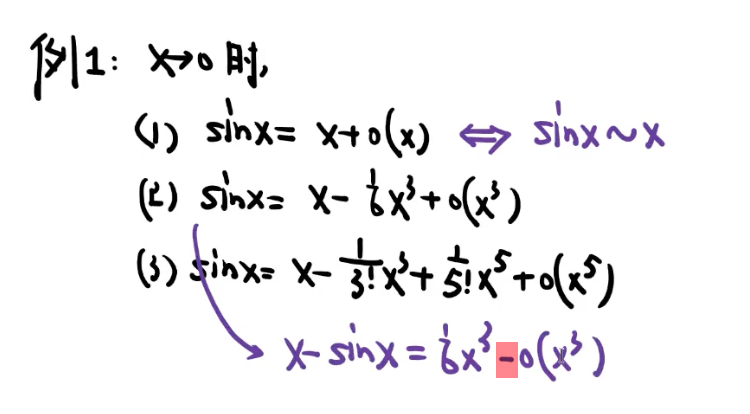 例1: x→0 时,
(1) sinx= x+o(x) ⇔ sinx~x
(2) sinx= x- 1/6 x³+o(x³)
(3) sinx= x- 1/3! x³+ 1/5! x⁵+o(x⁵)
x-sinx= 1/6 x³-o(x³)